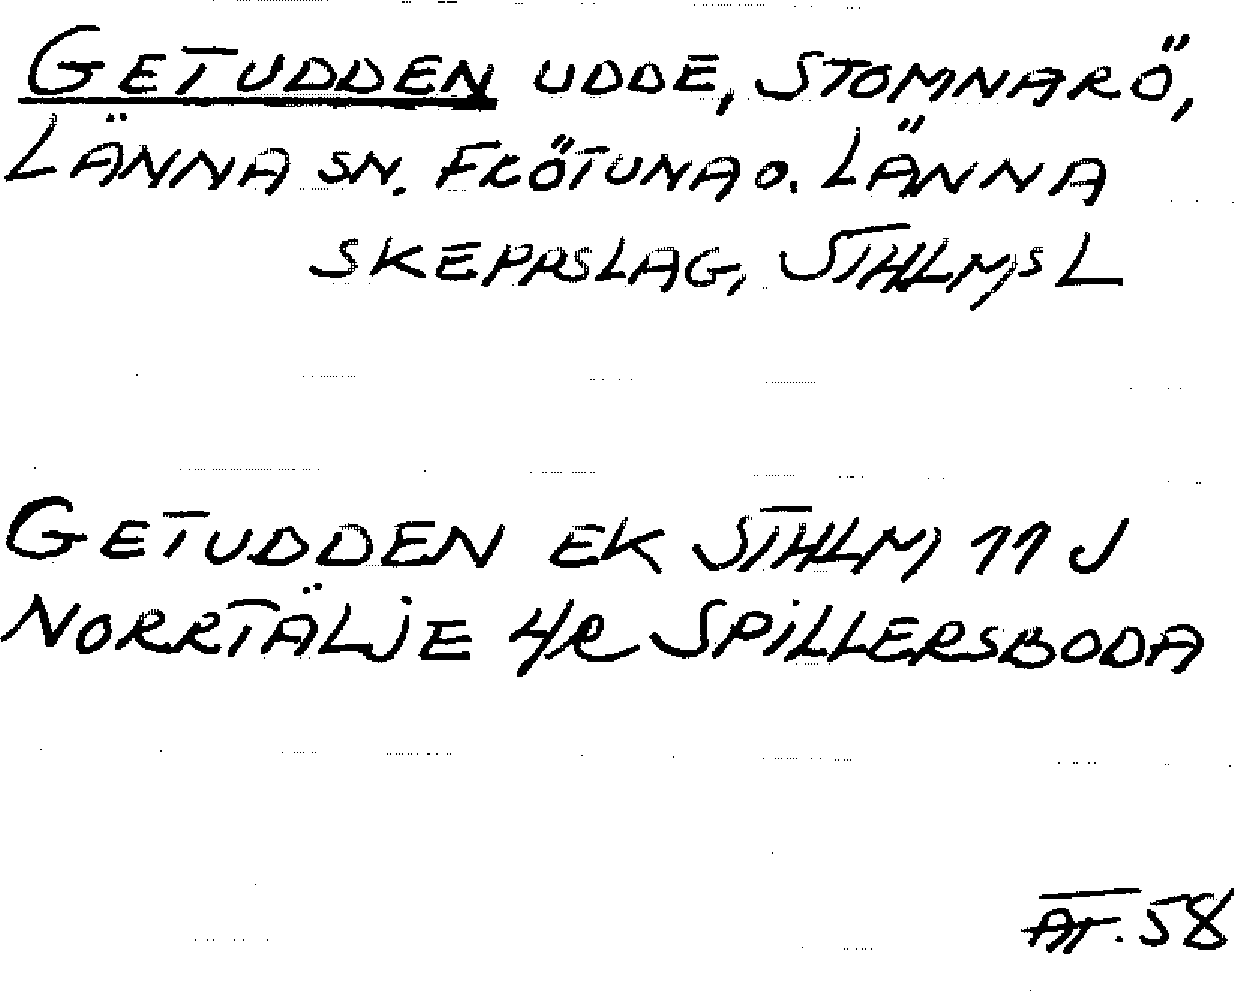 GETUDDEN UDDE, STOMNARÖ,
LÄNNA SN. FRÖTUNA O. LÄNNA
SKEPPSLAG, STHLMS L
GETUDDEN EK STHLM 11 J
NORRTÄLJE 4/R SPILLERSBODA
AT. 58